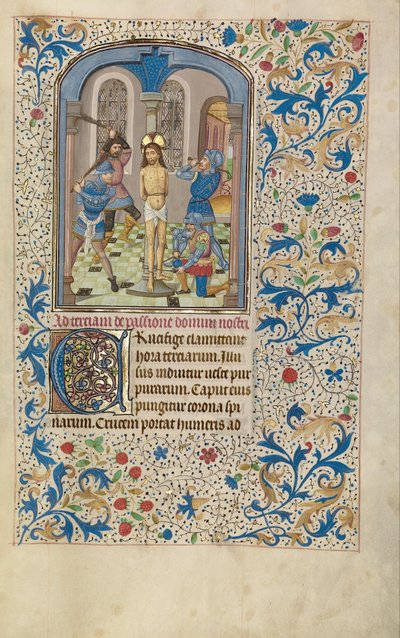 Ad terciam de passione domini nostri
Crucifige clamittant
hora terciarum. Illu
sus induitur veste pur
purarum. Caput eius
pungitur corona spi
narum. Crucem portat humeris ad